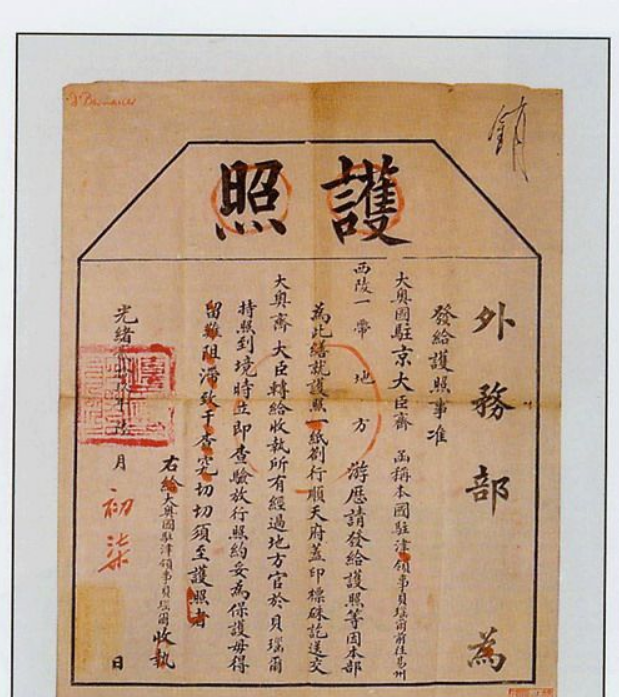 護照
外務部 為
發給護照事准
大奧國駐京大臣齋 函稱本國駐津領事貝瑙爾前往易州
西陵一帶地方 游歷請發給護照等因本部
為此繕就護照一紙劄行順天府蓋印標硃訖送交
大奧齋大臣轉給收執所有經過地方官於貝瑙爾
持照到境時立即查驗放行照約妥為保護毋得
留難阻滯致干查究切切須至護照者
右給大奧國駐津領事貝瑙爾收執
光緒 月初柒日
銷